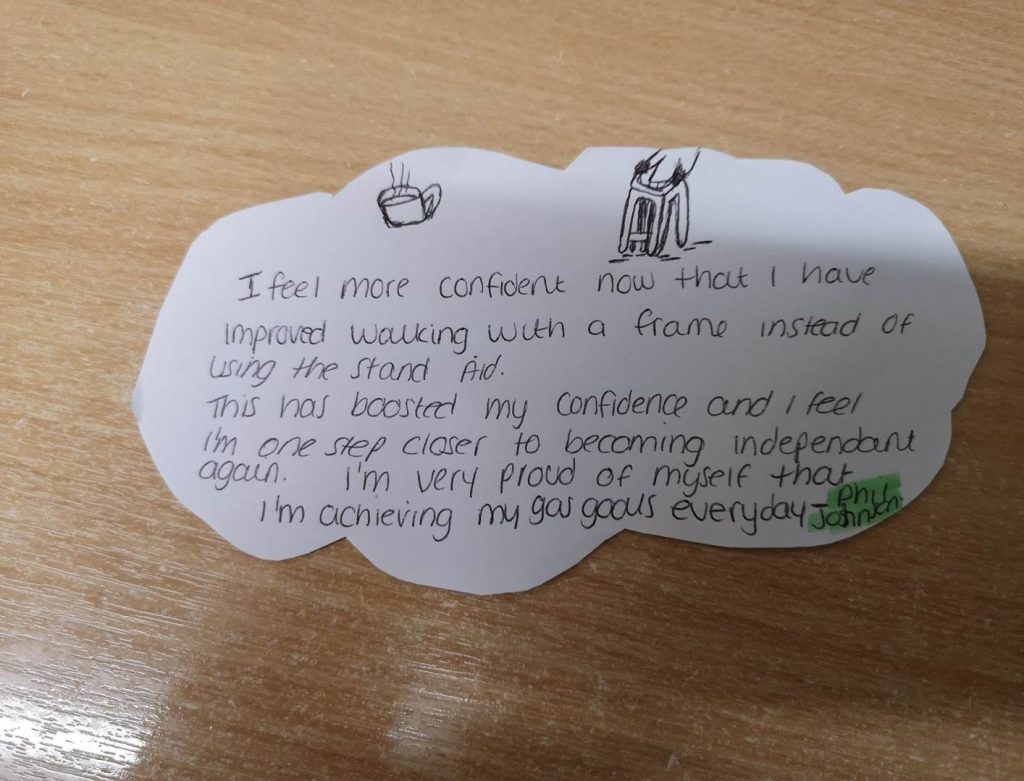 I feel more confident now that I have
improved walking with a frame instead of
using the stand Aid.
This has boosted my confidence and I feel
I'm one step closer to becoming independant
again. I'm very proud of myself that
I'm achieving my gas goals everyday - Phil
Johnson.